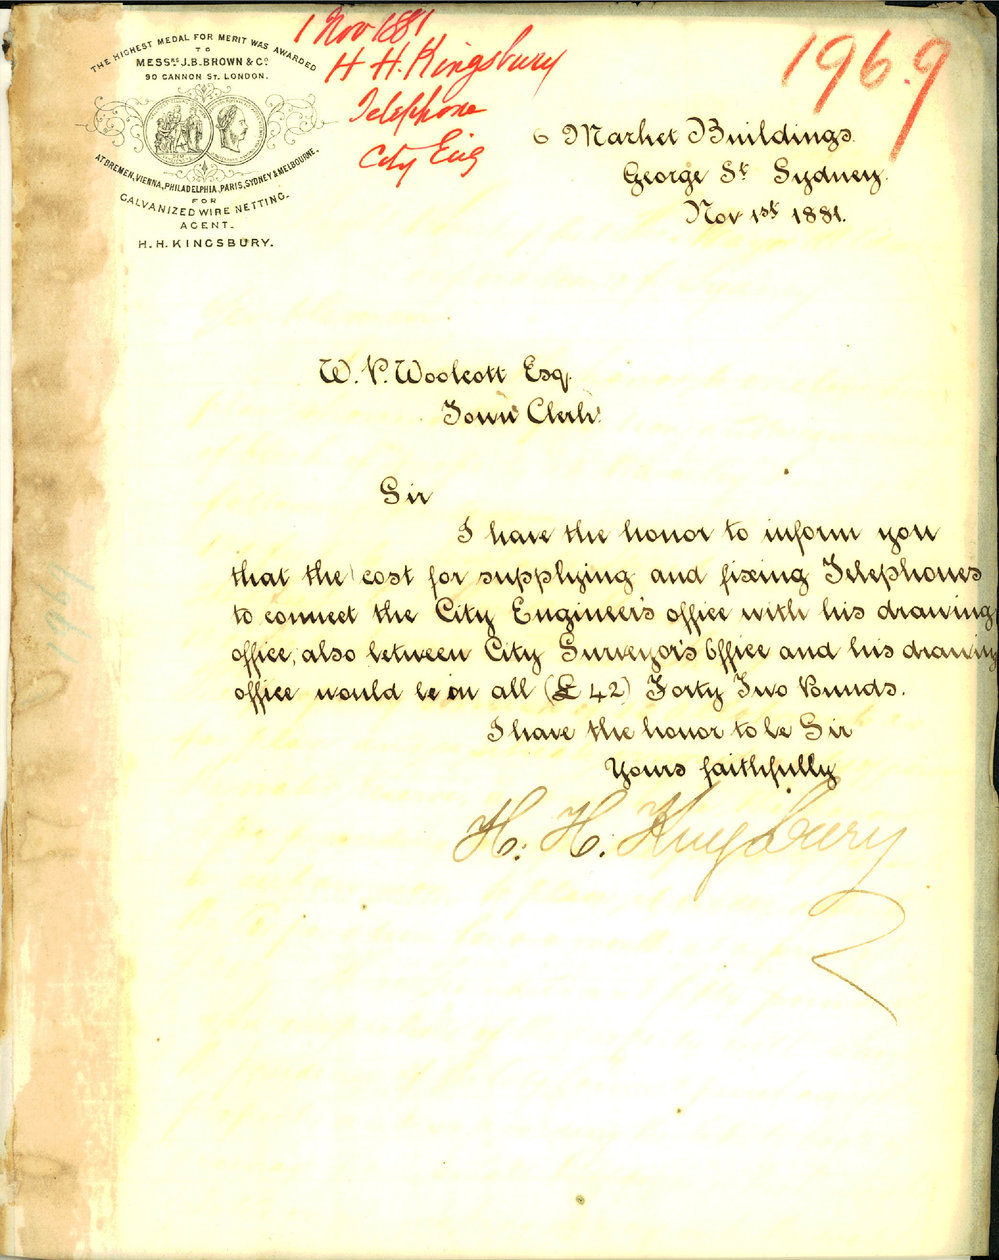 THE HIGHEST MEDAL FOR MERIT WAS AWARDED
TO
MESSRS J.B. BROWN & Co
90 CANNON ST. LONDON.
AT BREMEN, VIENNA, PHILADELPHIA, PARIS, SYDNEY & MELBOURNE.
FOR
GALVANIZED WIRE NETTING.
AGENT.
H. H. KINGSBURY.
1 Nov 1881
H H. Kingsbury
Telephone
City Eng
1969
6 Market Buildings.
George St Sydney.
Nov 1st 1881.
W. P. Woolcott Esq.
Town Clerk.
Sir
I have the honor to inform you
that the cost for supplying and fixing Telephones
to connect the City Engineer's office with his drawing
office, also between City Surveyor's Office and his drawing
office would be in all (£42) Forty Two Pounds.
I have the honor to be Sir
Yours faithfully
H. H. Kingsbury
1969